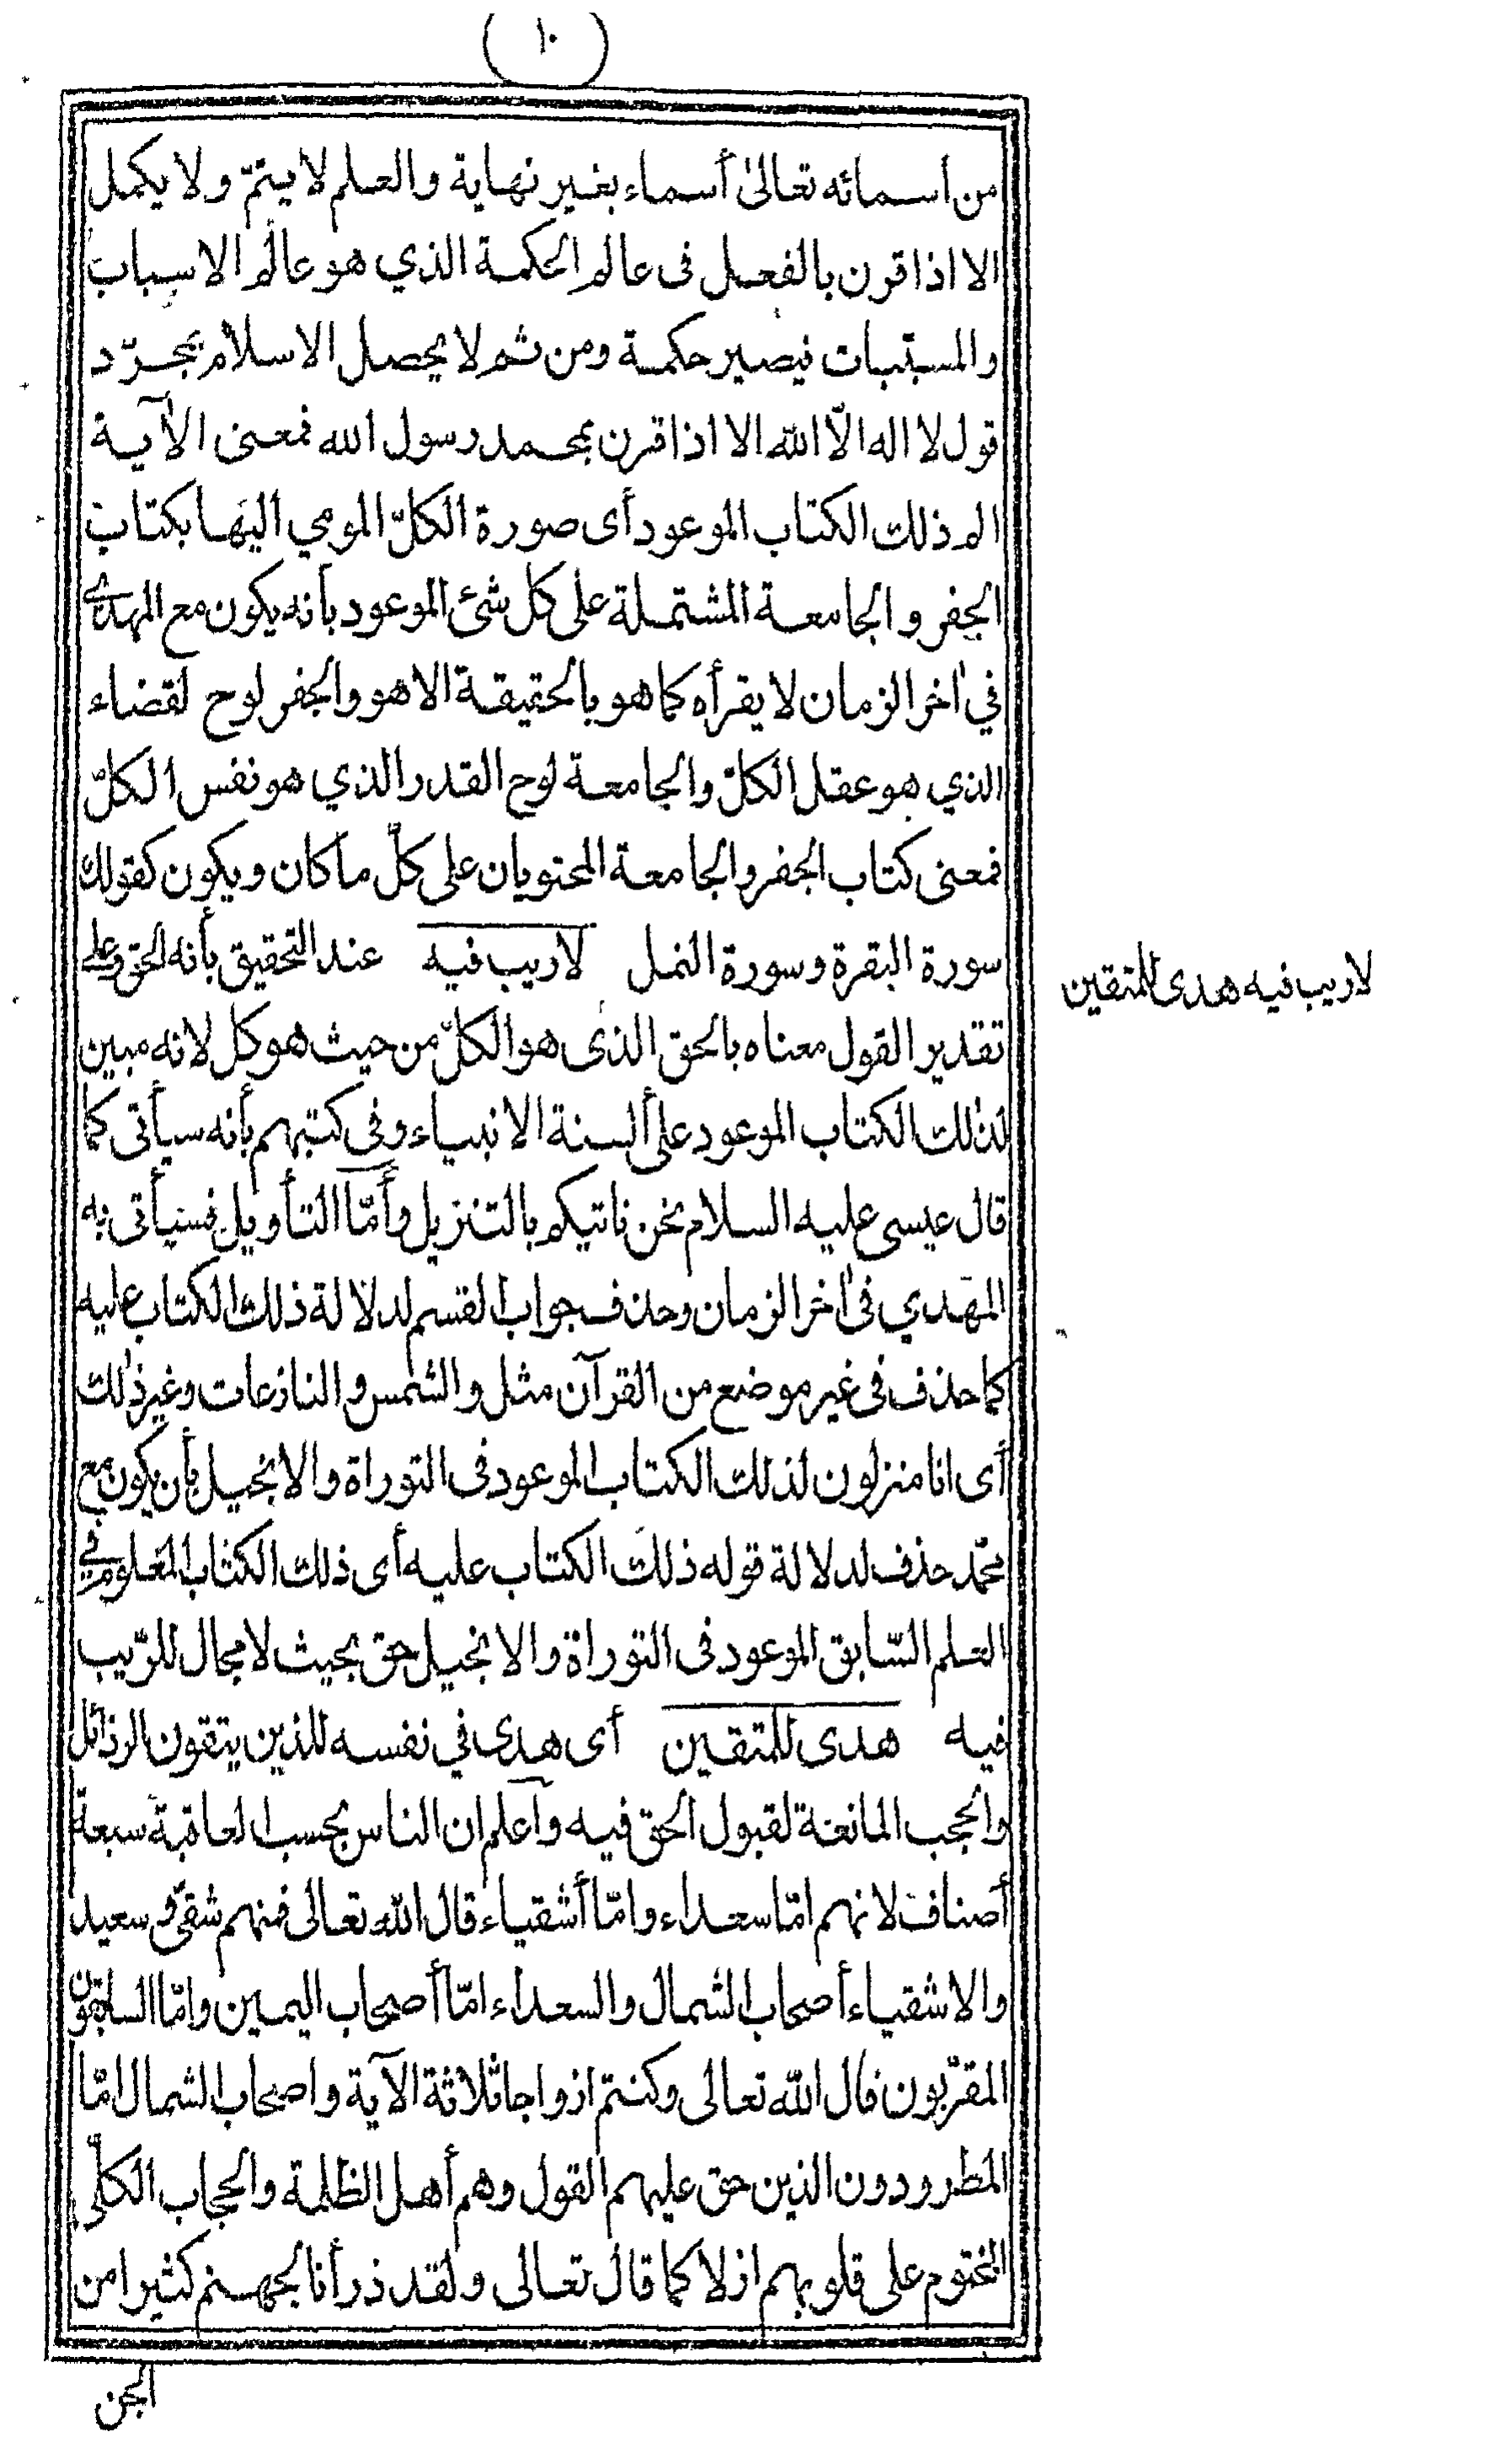 ١٠
من اسمائه تعالىٰ أسماء بغير نهاية والعلم لا يتمّ ولا يكمل
الا اذا قرن بالفعل فى عالم الحكمة الذي هو عالم الاسباب
والمسببات فيصير حكمة ومن ثم لا يحصل الاسلام بمجرّد
قول لا اله الّا اللّه الا اذا قرن بمحمد رسول الله فمعنى الآية
الم ذلك الكتاب الموعود أى صورة الكلّ المومي اليها بكتاب
الجفر والجامعة المشتملة على كل شئ الموعود بأنه يكون مع المهدى
في اٰخر الزمان لا يقرأه كما هو بالحقيقة الا هو والجفر لوح لقضاء
الذي هو عقل الكلّ والجامعة لوح القدر الذي هو نفس الكلّ
فمعنى كتاب الجفر والجامعة المحتويان على كلّ ما كان ويكون كقولك
سورة البقرة وسورة النمل لاريب فيه عند التحقيق بأنه الحق وعلى
لاريب فيه هدى للمتقين
تقدير القول معناه بالحق الذى هو الكلّ من حيث هو كل لانه مبين
لذٰلك الكتاب الموعود على ألسنة الانبياء وفى كتبهم بأنه سيأتى كما
قال عيسى عليه السلام نحن ناتيكم بالتنزيل وأمّا التأويل فسيأتى به
المهدي فى اٰخر الزمان وحذف جواب القسم لدلالة ذلك الكتاب عليه
كما حذف فى غير موضع من القرآن مثل والشمس والنازعات وغير ذٰلك
أى انا منزلون لذلك الكتاب الموعود فى التوراة والانجيل بأن يكون مع
محمّد حذف لدلالة قوله ذلك الكتاب عليه أى ذلك الكتاب المعلوم في
العلم السّابق الموعود فى التوراة والانجيل حق بحيث لا مجال للرّيب
فيه هدى للمتقين أى هدى في نفسه للذين يتقون الرذائل
والحجب المانعة لقبول الحق فيه واعلم ان الناس بحسب العاقبة سبعة
أصناف لانهم امّا سعداء وامّا أشقياء قال اللّه تعالى فمنهم شقىّ وسعيد
والاشقياء أصحاب الشمال والسعداء امّا أصحاب اليمين وامّا السابقون
المقرّبون قال اللّه تعالى وكنتم ازواجا ثلاثة الآية واصحاب الشمال امّا
المطرودون الذين حق عليهم القول وهم أهل الظلمة والحجاب الكلّى
المختوم على قلوبهم ازلا كما قال تعالى ولقد ذرأنا لجهنم كثيرا من
الجن